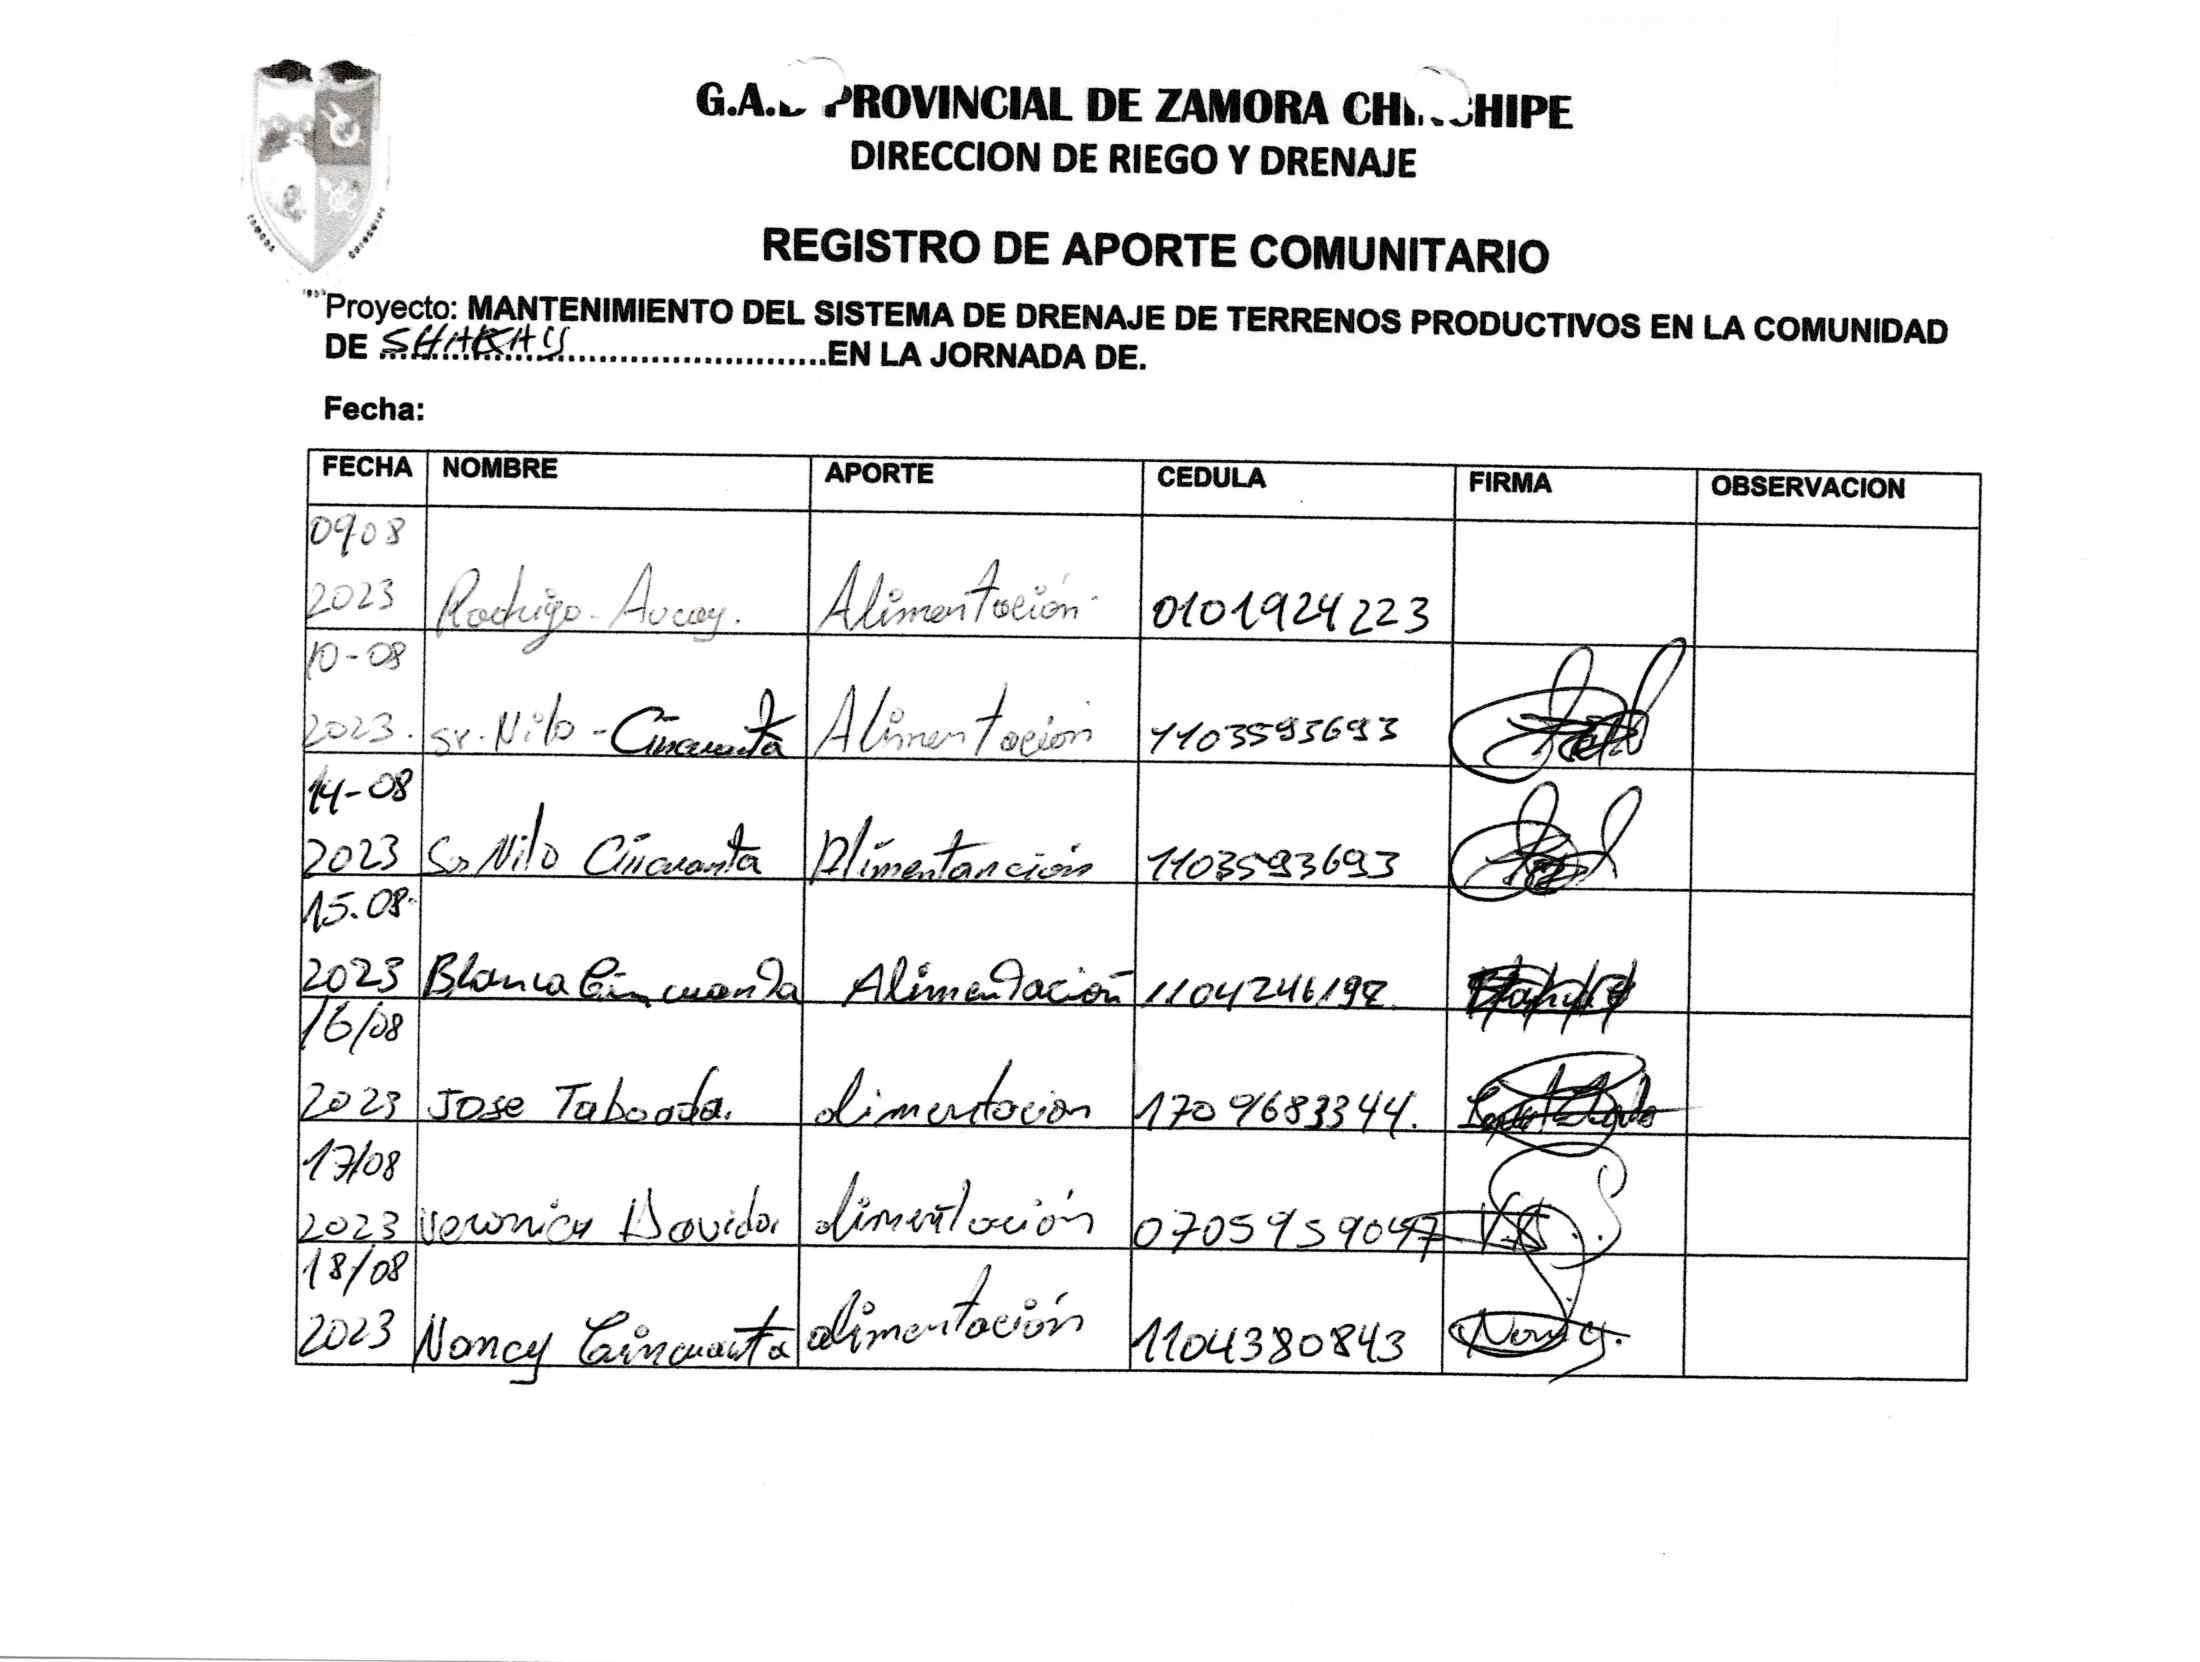 G.A.D PROVINCIAL DE ZAMORA CHINCHIPE
DIRECCION DE RIEGO Y DRENAJE
REGISTRO DE APORTE COMUNITARIO
Proyecto: MANTENIMIENTO DEL SISTEMA DE DRENAJE DE TERRENOS PRODUCTIVOS EN LA COMUNIDAD
DE SHAKAY EN LA JORNADA DE.
Fecha:
FECHA NOMBRE APORTE CEDULA FIRMA OBSERVACION
0908
2023 Rodrigo - Aucay. Alimentación 0101924223
10-08
2023. Sr. Nilo - Cincuanta Alimentación 1103593693
14-08
2023 Sr Nilo Cincuanta Alimentanción 1103593693
15.08.
2023 Blanca Cincuanta Alimentación 1104246197
16/08
2023 Jose Taboada. alimentacion 1709683344.
17/08
2023 Veronica alimentación 0705959047
18/08
2023 Nancy Cincuanta alimentación 1104380843 Nancy.